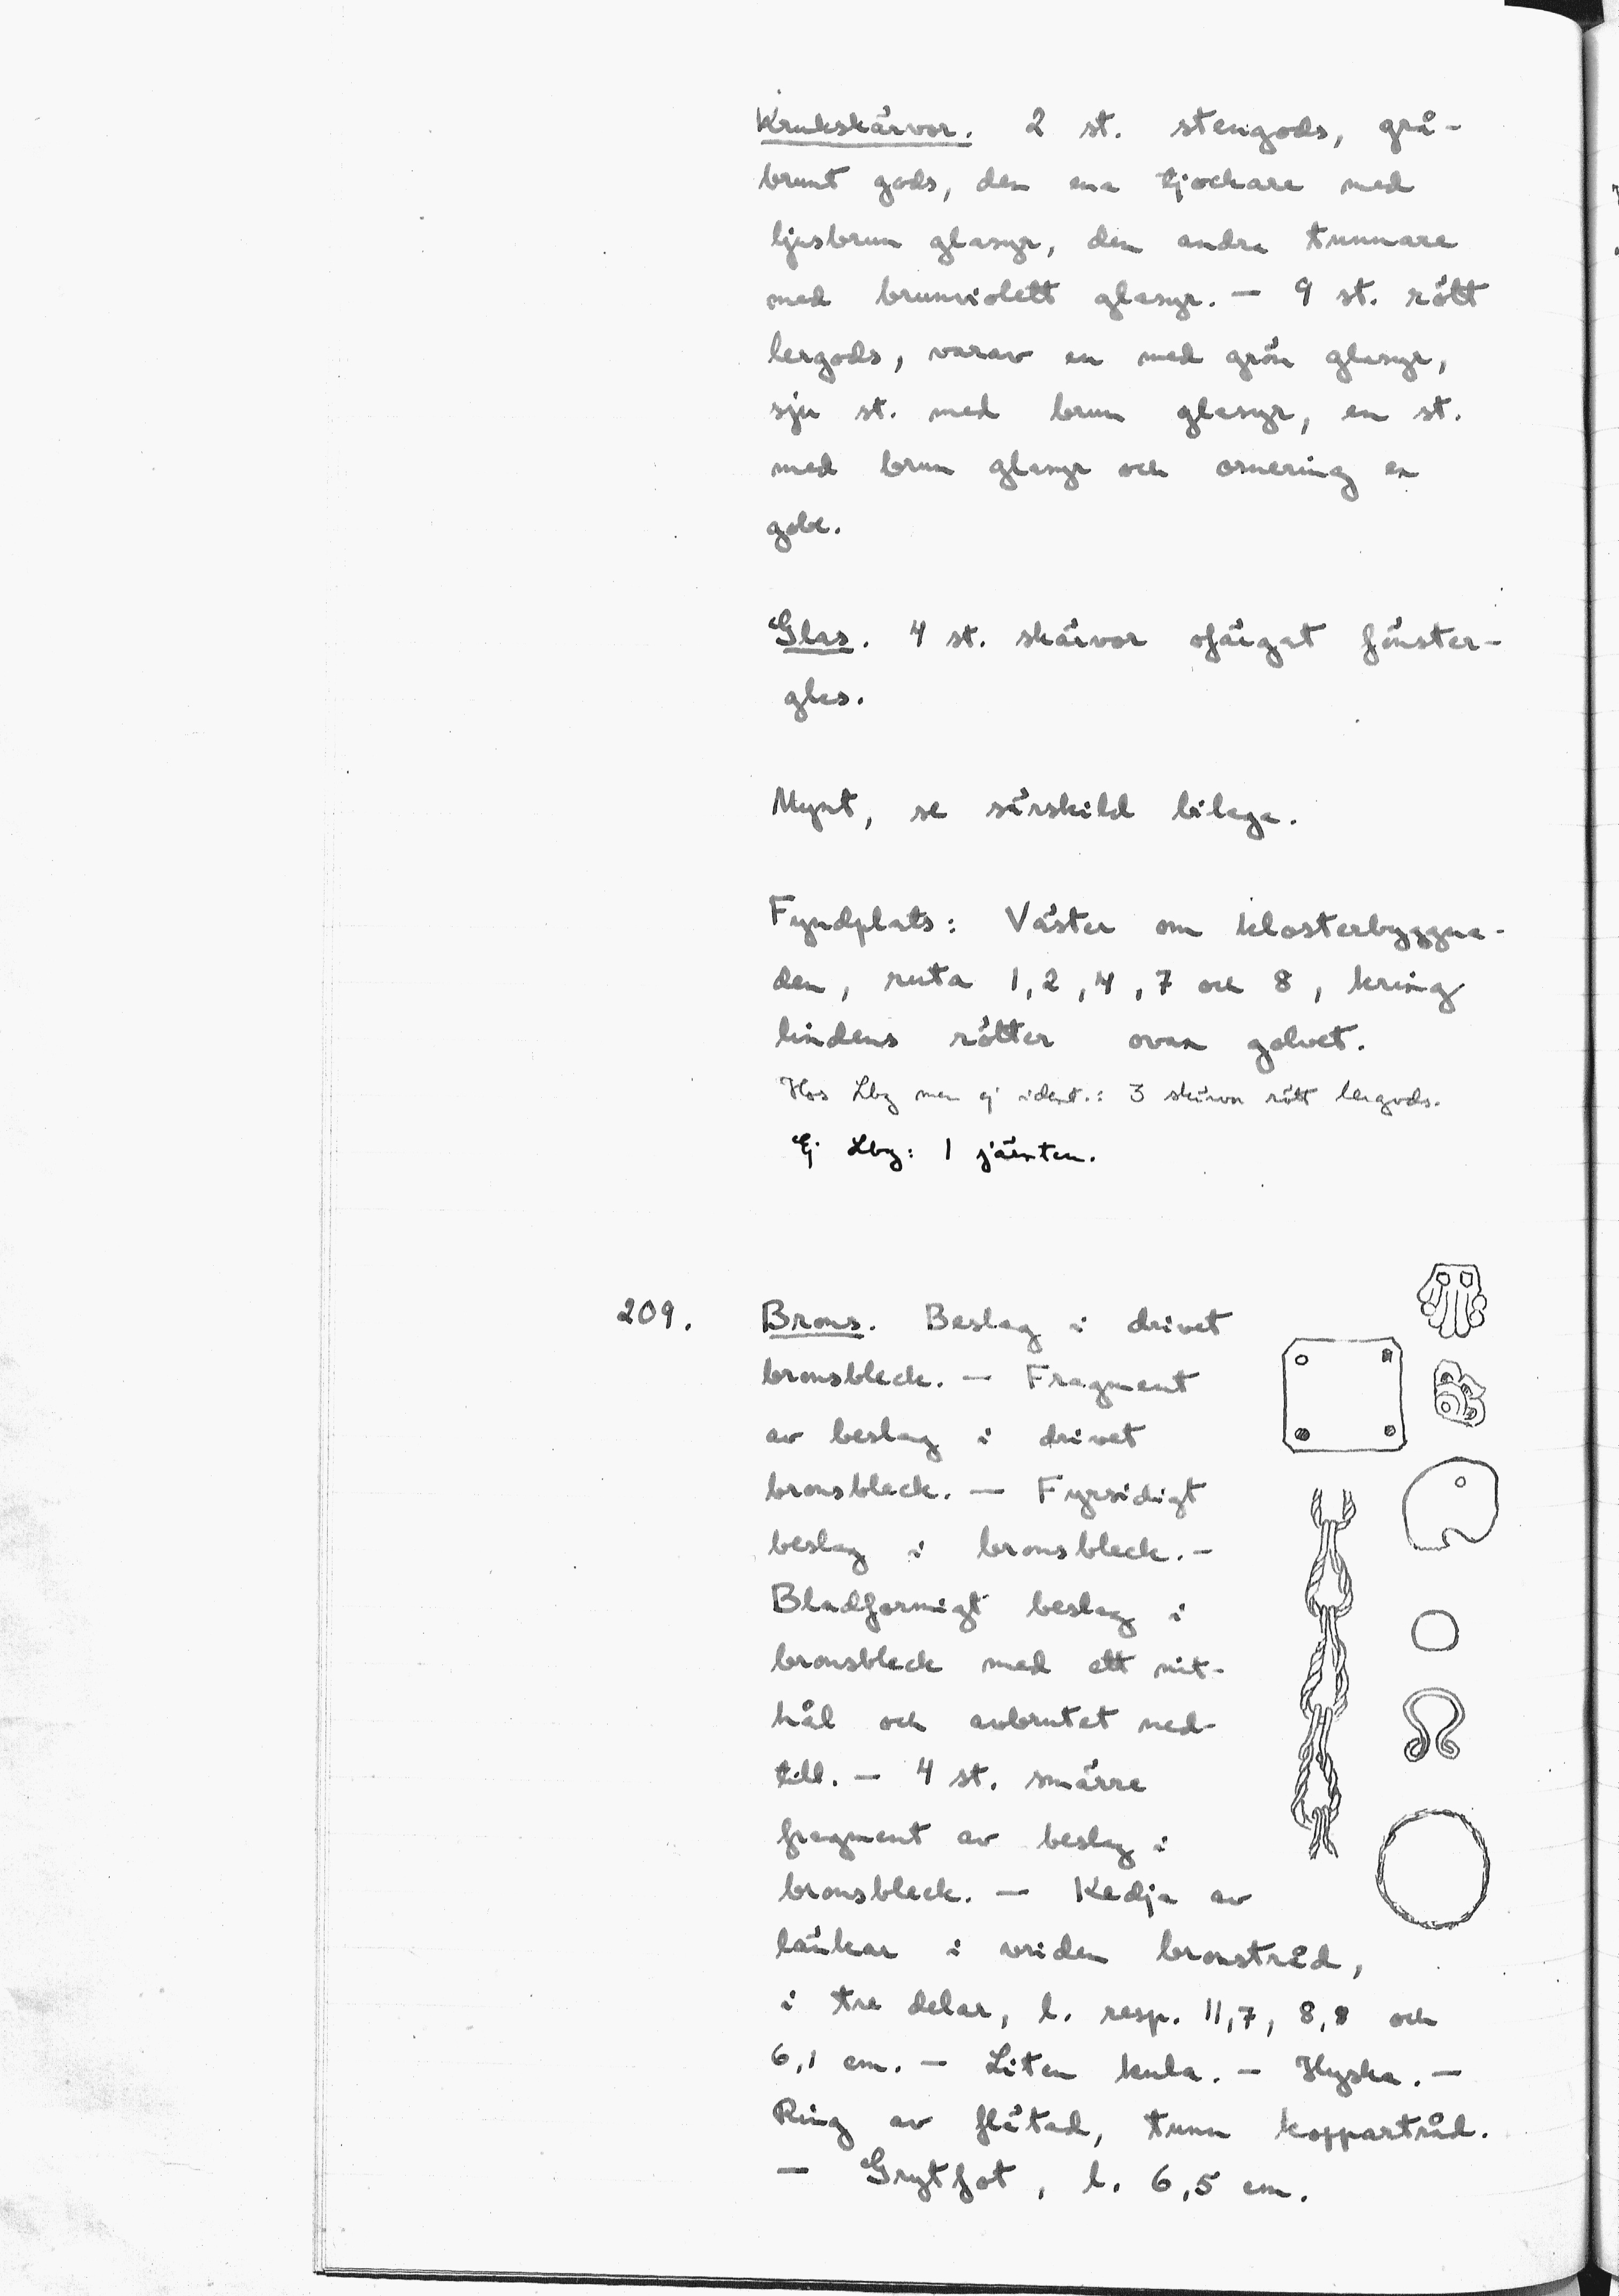 Krukskärvor. 2 st. stengods, grå-
brunt gods, den ena tjockare med
ljusbrun glasyr, den andra tunnare
med brunviolett glasyr. — 9 st. rött
lergods, varav en med grön glasyr,
sju st. med brun glasyr, en st.
med brun glasyr och ornering en
gobe.
Glas. 4 st. skärvor ofärgat fönster-
glas.
Mynt, se särskild bilaga.
Fyndplats: Väster om klosterbyggna-
den, ruta 1, 2, 4, 7 och 8, kring
lindens rötter ovan golvet.
Hos Lbg men ej ident.: 3 skärvor rött lergods.
Ej Lbg: 1 järnten.
209. Brons. Beslag i drivet
bronsbleck. — Fragment
av beslag i drivet
bronsbleck. — Fyrsidigt
beslag i bronsbleck. —
Bladformigt beslag i
bronsbleck med ett nit-
hål och avbrutet ned-
till. — 4 st. smärre
fragment av beslag i
bronsbleck. — Kedja av
länkar i vriden bronstråd,
i tre delar, l. resp. 11,7, 8,8 och
6,1 cm. — Liten kula. — Hyska. —
Ring av flätad, tunn koppartråd.
— Grytfot, l. 6,5 cm.